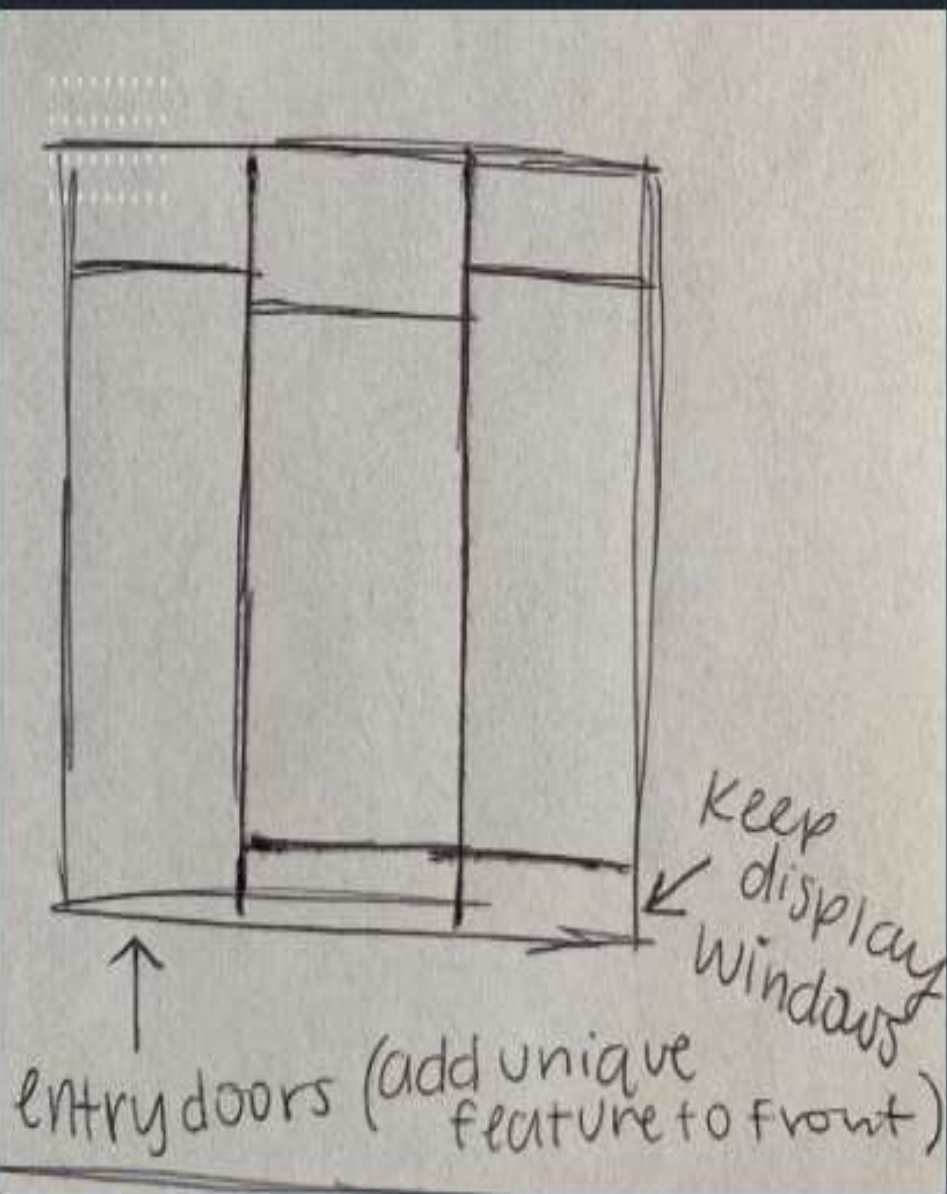 Keep
display
windows
entry doors (add unique
feature to front)